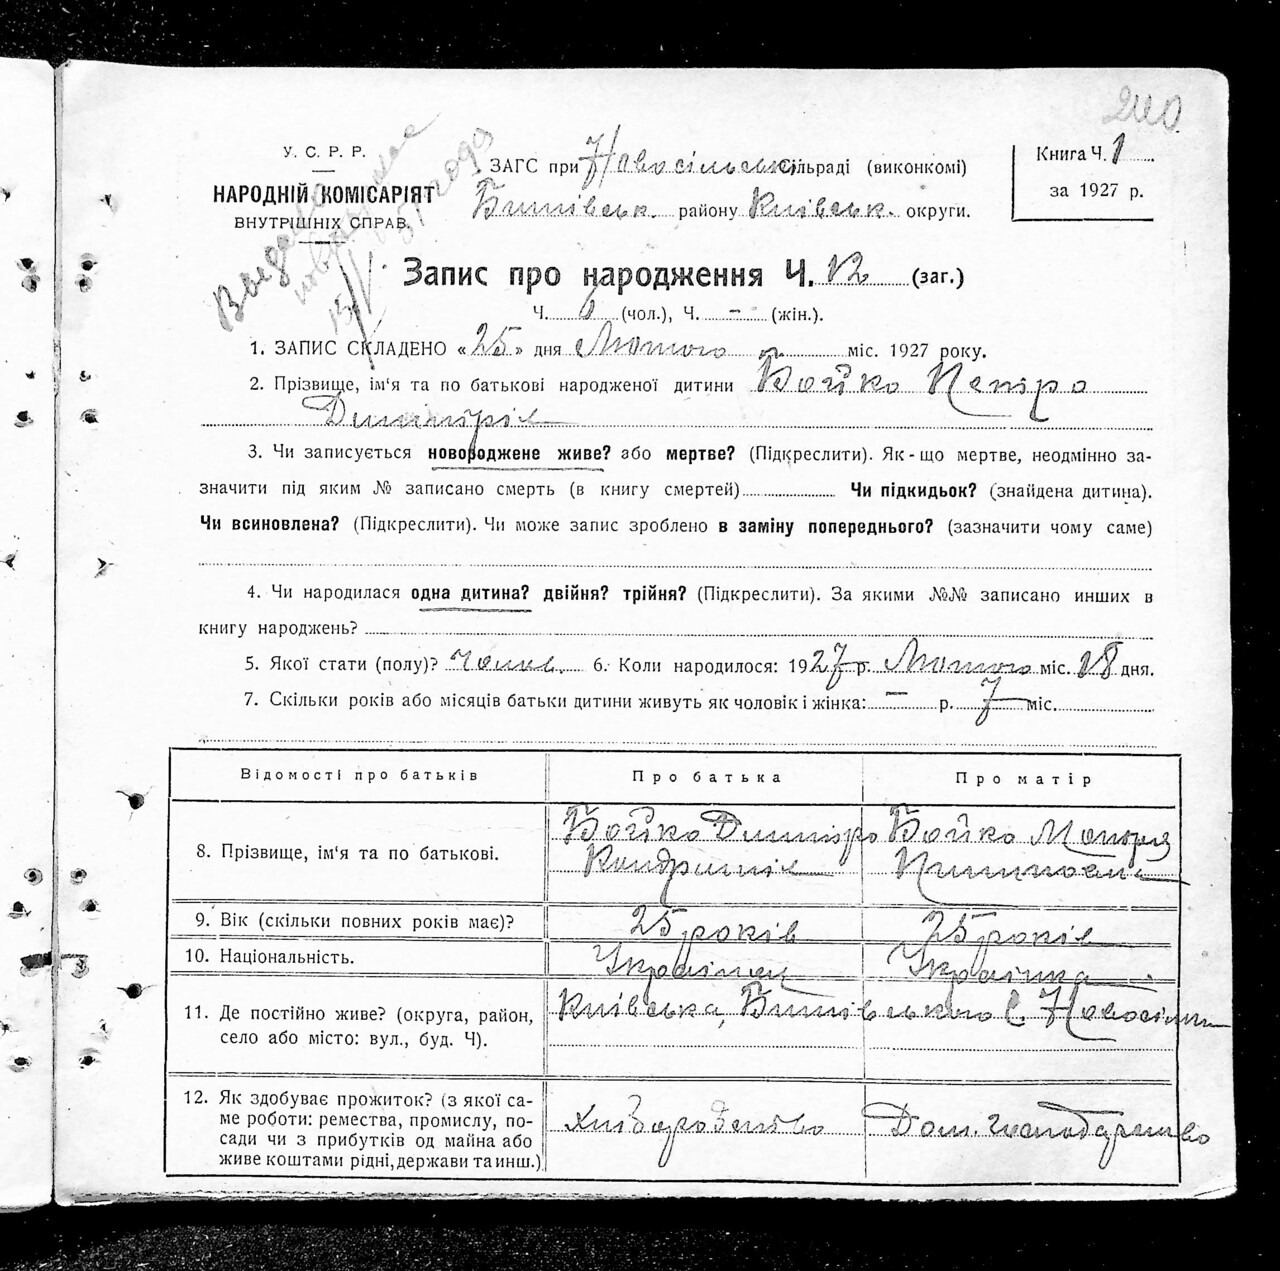 240
У. С. Р. Р.
НАРОДНІЙ КОМІСАРІЯТ
ВНУТРІШНІХ СПРАВ.
ЗАГС при Новосільськ. сільраді (виконкомі)
Бишівськ. району Київськ. округи.
Книга Ч. 1
за 1927 р.
Запис про народження Ч. 12 (заг.)
Ч. (чол.), Ч. – (жін.).
1. ЗАПИС СКЛАДЕНО «25» дня Лютого міс. 1927 року.
2. Прізвище, ім'я та по батькові народженої дитини Бойко Петро
Дмитрів
3. Чи записується новороджене живе? або мертве? (Підкреслити). Як-що мертве, неодмінно за-
значити під яким № записано смерть (в книгу смертей) Чи підкидьок? (знайдена дитина).
Чи всиновлена? (Підкреслити). Чи може запис зроблено в заміну попереднього? (зазначити чому саме)
4. Чи народилася одна дитина? двійня? трійня? (Підкреслити). За якими №№ записано инших в
книгу народжень?
5. Якої стати (полу)? чолов. 6. Коли народилося: 1927 р. Лютого міс. 18 дня.
7. Скільки років або місяців батьки дитини живуть як чоловік і жінка: – р. 7 міс.
Відомості про батьків Про батька Про матір
8. Прізвище, ім'я та по батькові. Бойко Дмитро Бойко Мотря
Кондратів
9. Вік (скільки повних років має)? 25 років 25 років
10. Національність. Українец Українка
11. Де постійно живе? (округа, район, Київська, Бишівського С. Новосілки
село або місто: вул., буд. Ч).
12. Як здобуває прожиток? (з якої са-
ме роботи: ремества, промислу, по- Хліборобство Дом. господарство
сади чи з прибутків од майна або
живе коштами рідні, держави та инш.)